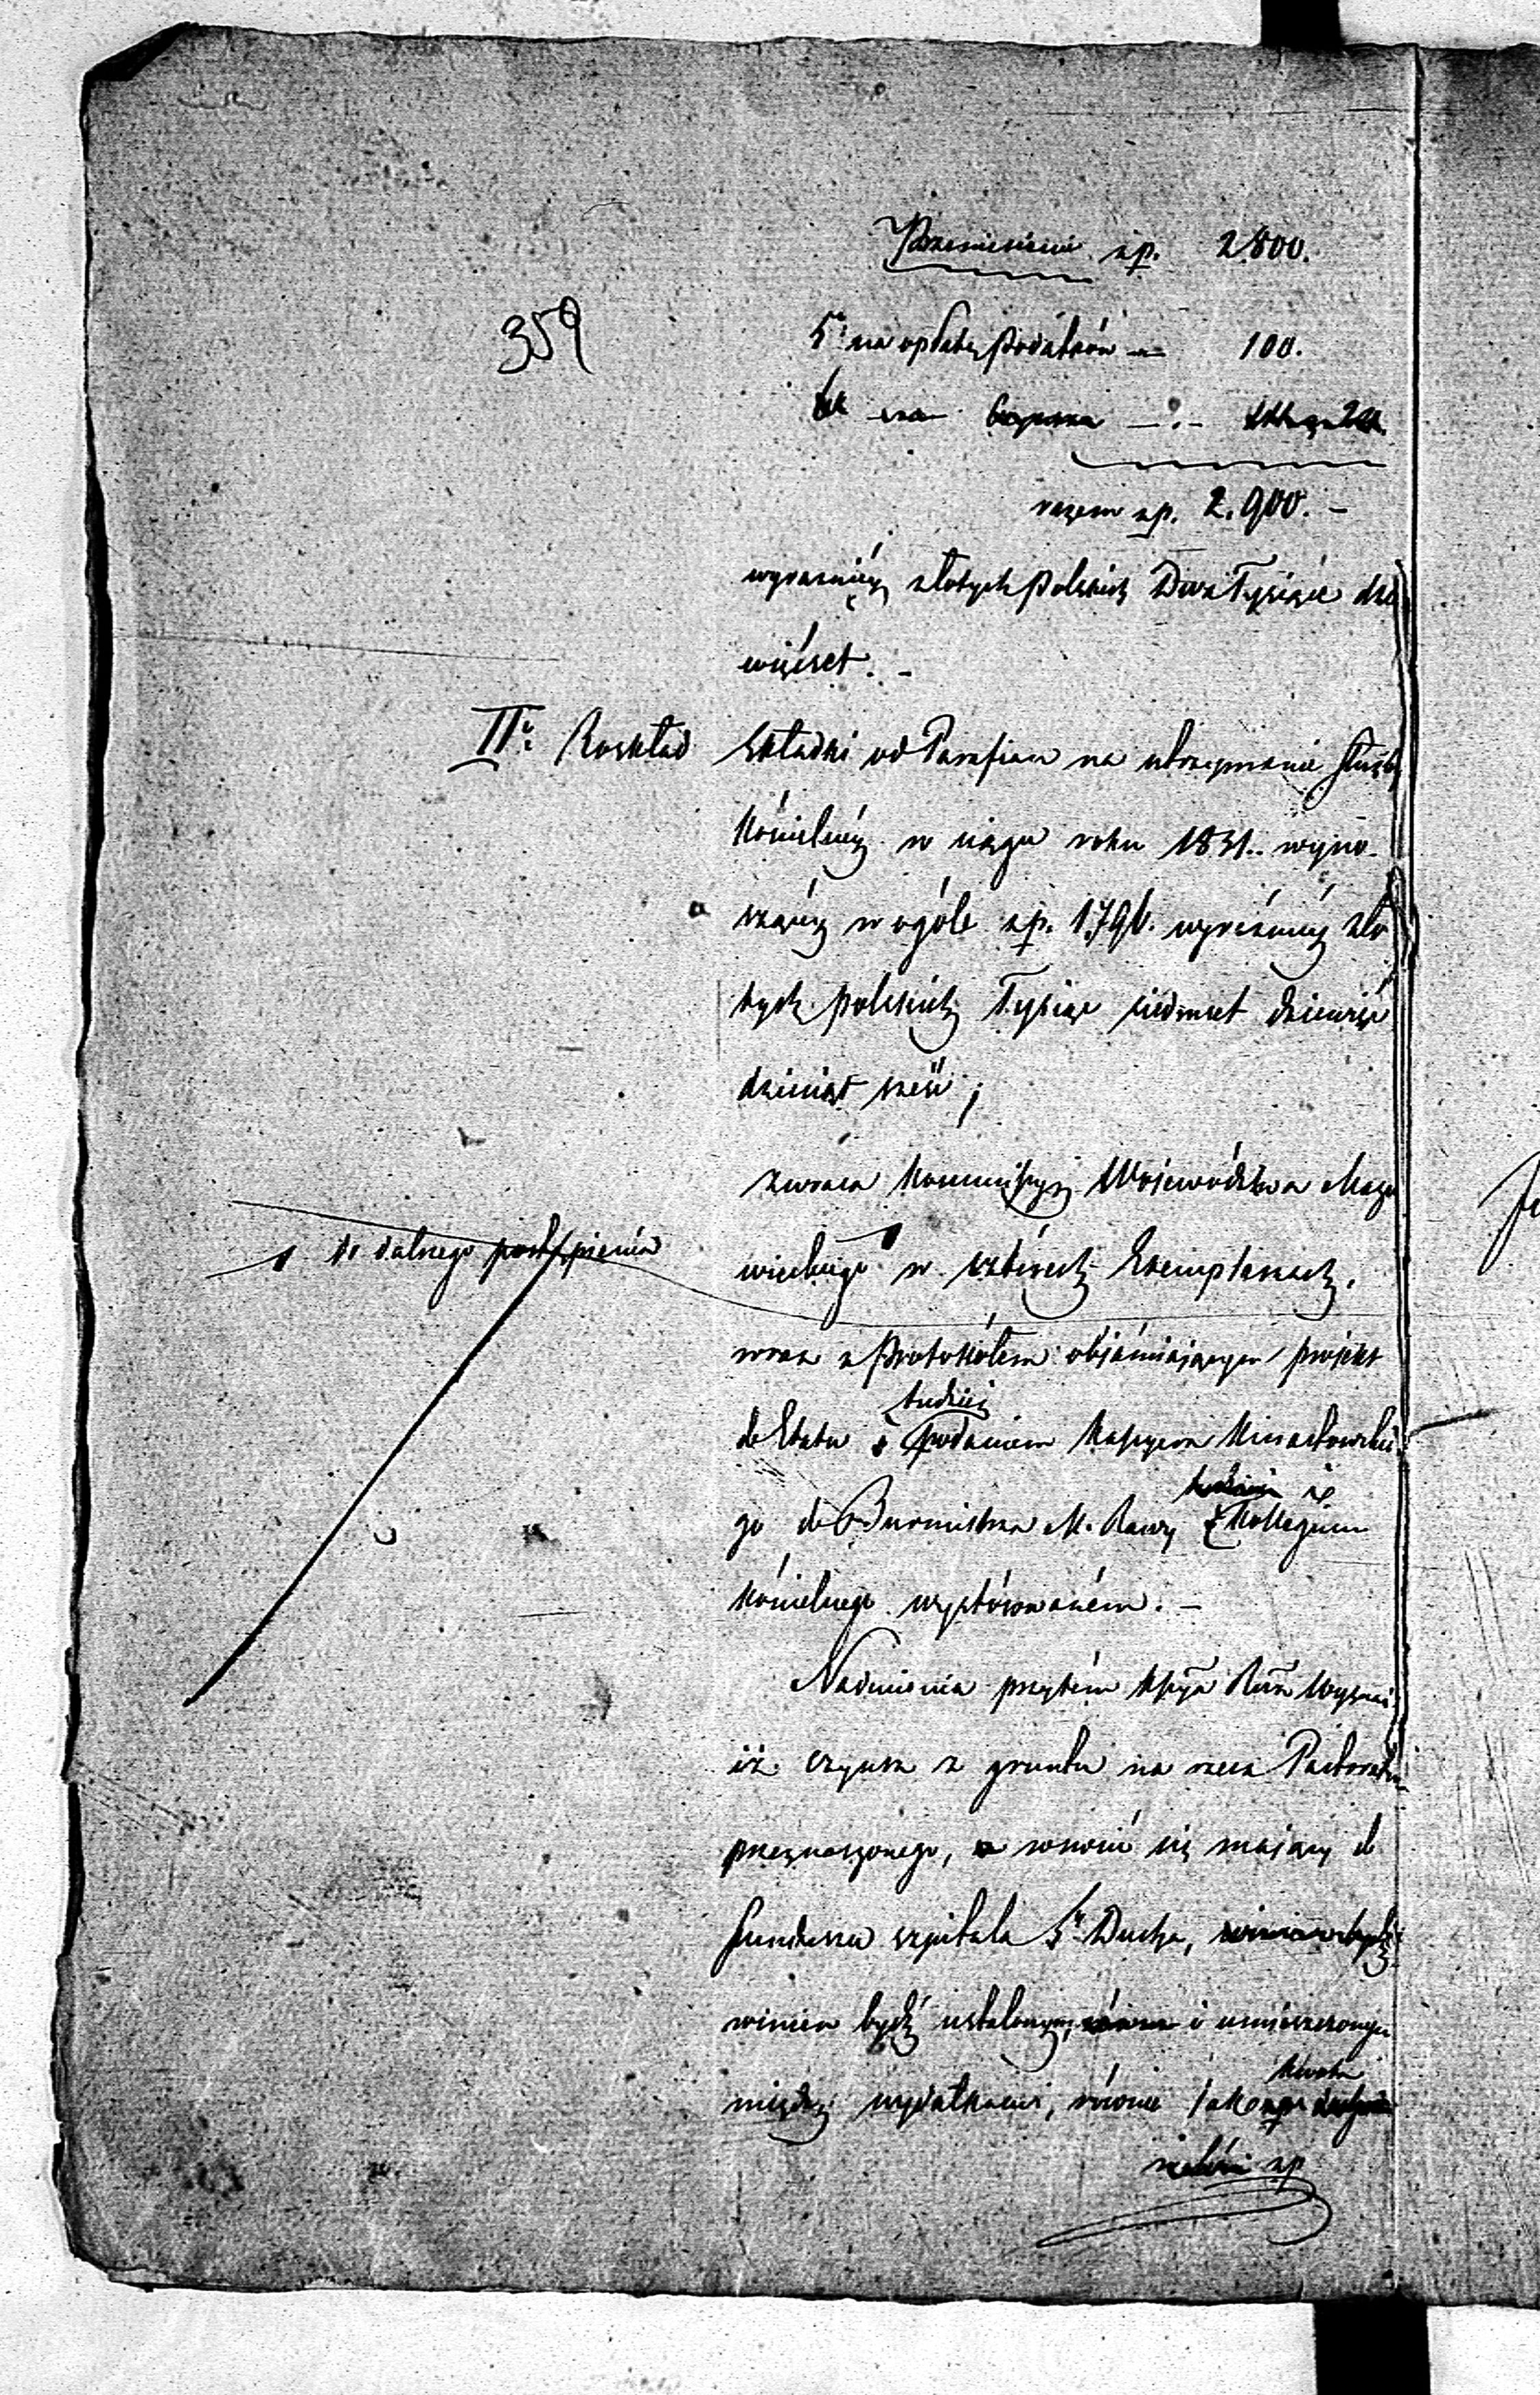 Przeniesienie zp. 2800.
359
5° na opłatę podatków — 100.
na Czynsz —.—
razem zp. 2.900. –
wyraźniéj złotych polskich Dwa Tysiące dzie
więćset. –
II° Rozkład składki od Parafian na utrzymanie służby
Kościelnéj w ciągu roku 1831. wyno-
szącéj w ogóle zp. 1796. wyraźniéj zło
tych polskich Tysiąc siedmset dziewięć
dziesiąt sześć;
zwraca Kommissyi Województwa Mazo
do dalszego postąpienia
wieckiego w czterech Exemplarzach,
wraz z Protokółem objaśniającym projekt
tudzież
do Etatu podaniem Kassyera
go do Burmistrza M. Rawy z Kollegium
Kościelnego wystósowaném. –
Nadmienia przytém Wyznań
iż czynsz z gruntu na rzecz Pastoratu
przeznaczonego, wnosić się mający do
funduszu szpitala Sgo Ducha,
winien bydź ustalonym, i umieszczonym
kwota
między wydatkami, równie jako
zp